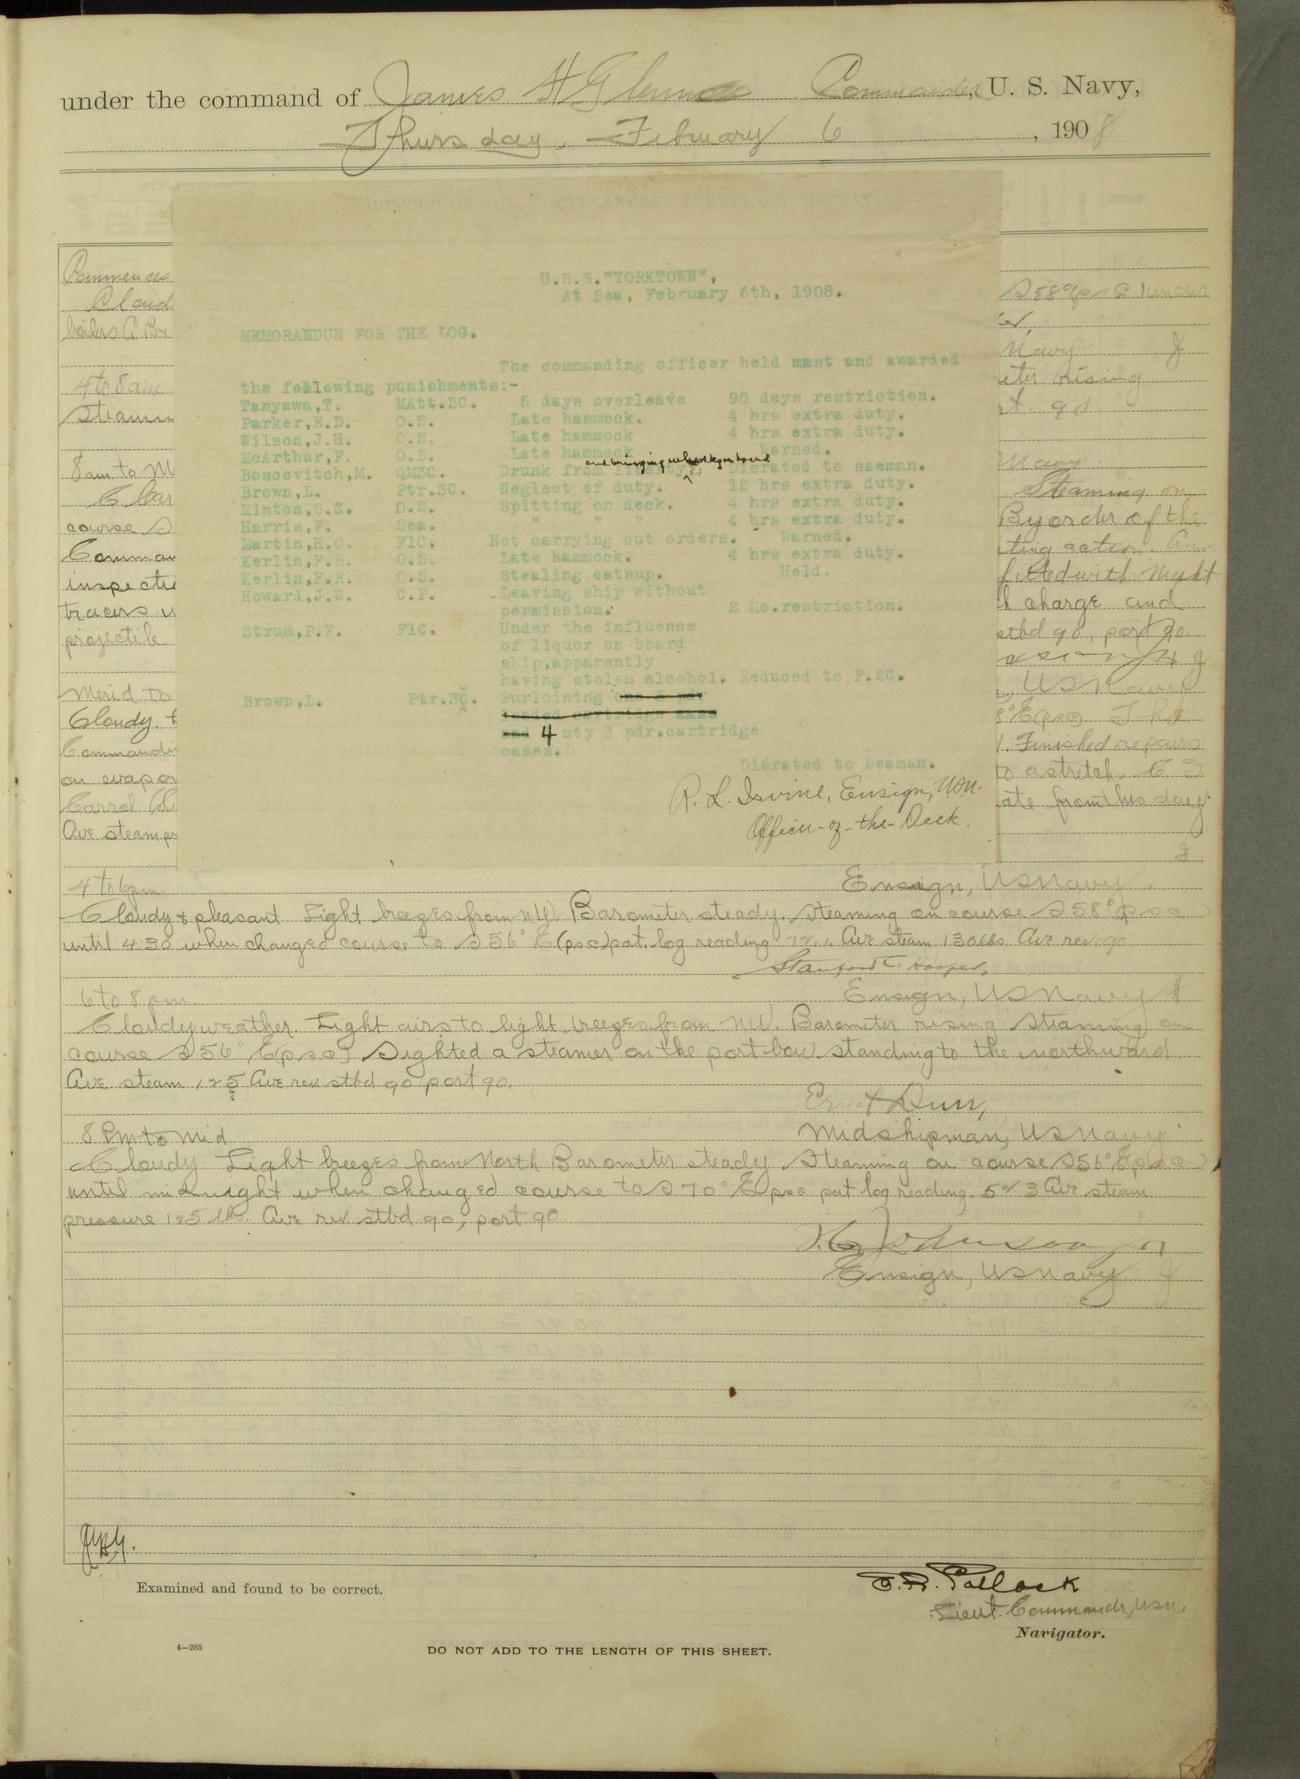 under the command of James H Glennon Commander, U. S. Navy,
Thursday, February 6, 1908
Commences
Cloud
boilers C
4 to 8 am
steaming
8 am to M
Clear
course S
Comman
inspectio
tracers
projectile
Merid to
Cloudy.
Commandi
on evapor
Carral
Ave steam
S58°E psc under
Navy
eter rising
rt. 90
Navy
Steaming on
By order of the
ting action.
fitted with night
h charge and
stbd 90, port 90
USNavy
Finished repairs
to a stretch.
ate from this day
U.S.S."YORKTOWN",
At Sea, February 6th, 1908.
MEMORANDUM FOR THE LOG.
The commanding officer held mast and awarded
the following punishments:-
Tanyawa,T. MAtt.2C. 5 days overleave 90 days restriction.
Parker,E.D. O.S. Late hammock. 4 hrs extra duty.
Wilson,J.H. O.S. Late hammock 4 hrs extra duty.
McArthur,F. O.S. Late hammock Warned.
and bringing whiskey on board
Boscovitch,M. QM3C. Drunk from liberty, Disrated to seaman.
Brown,L. Ptr.3C. Neglect of duty. 12 hrs extra duty.
Minton,S.Z. D.S. Spitting on deck. 4 hrs extra duty.
Harris,F. Sea. " " " 4 hrs extra duty.
Martin,H.C. F1C. Not carrying out orders. Warned.
Kerlin,F.R. O.S. Late hammock. 4 hrs extra duty.
Kerlin,F.R. O.S. Stealing catsup. Held.
Howard,J.W. C.P. Leaving ship without
permission. 2 Mo.restriction.
Strum,P.F. F1C. Under the influence
of liquor on board
ship,apparently
having stolen alcohol. Reduced to F.2C.
Brown,L. Ptr.3C. Purloining
4 mty 3 pdr.cartridge
cases.
Disrated to Seaman.
R. L. Irvine, Ensign, USN.
Officer-of-the-Deck.
4 to 6 pm
Ensign, USNavy.
Cloudy & pleasant Light breezes from NW. Barometer steady. Steaming on course S58°E (psc)
until 4 30 when changed course to S56°E (psc) pat. log reading 72.1 Ave steam 130 lbs Ave rev. 90
Stanford C. Hooper,
Ensign, USNavy
6 to 8 pm
Cloudy weather. Light airs to light breezes from NW. Barometer rising Steaming on
course S56°E (psc) Sighted a steamer on the port bow standing to the northward
Ave steam 125 Ave rev stbd 90 port 90.
Ernest Durr,
Midshipman, USNavy
8 Pm to Mid
Cloudy Light breezes from North Barometer steady Steaming on course S56°E (psc)
until midnight when changed course to S70°E psc pat log reading 52.3 Ave steam
pressure 125 lbs. Ave rev stbd 90, port 90
Johnson Jr
Ensign, USNavy
Examined and found to be correct.
E.R. Pollock
Lieut. Commander, USN.
Navigator.
4—265
DO NOT ADD TO THE LENGTH OF THIS SHEET.